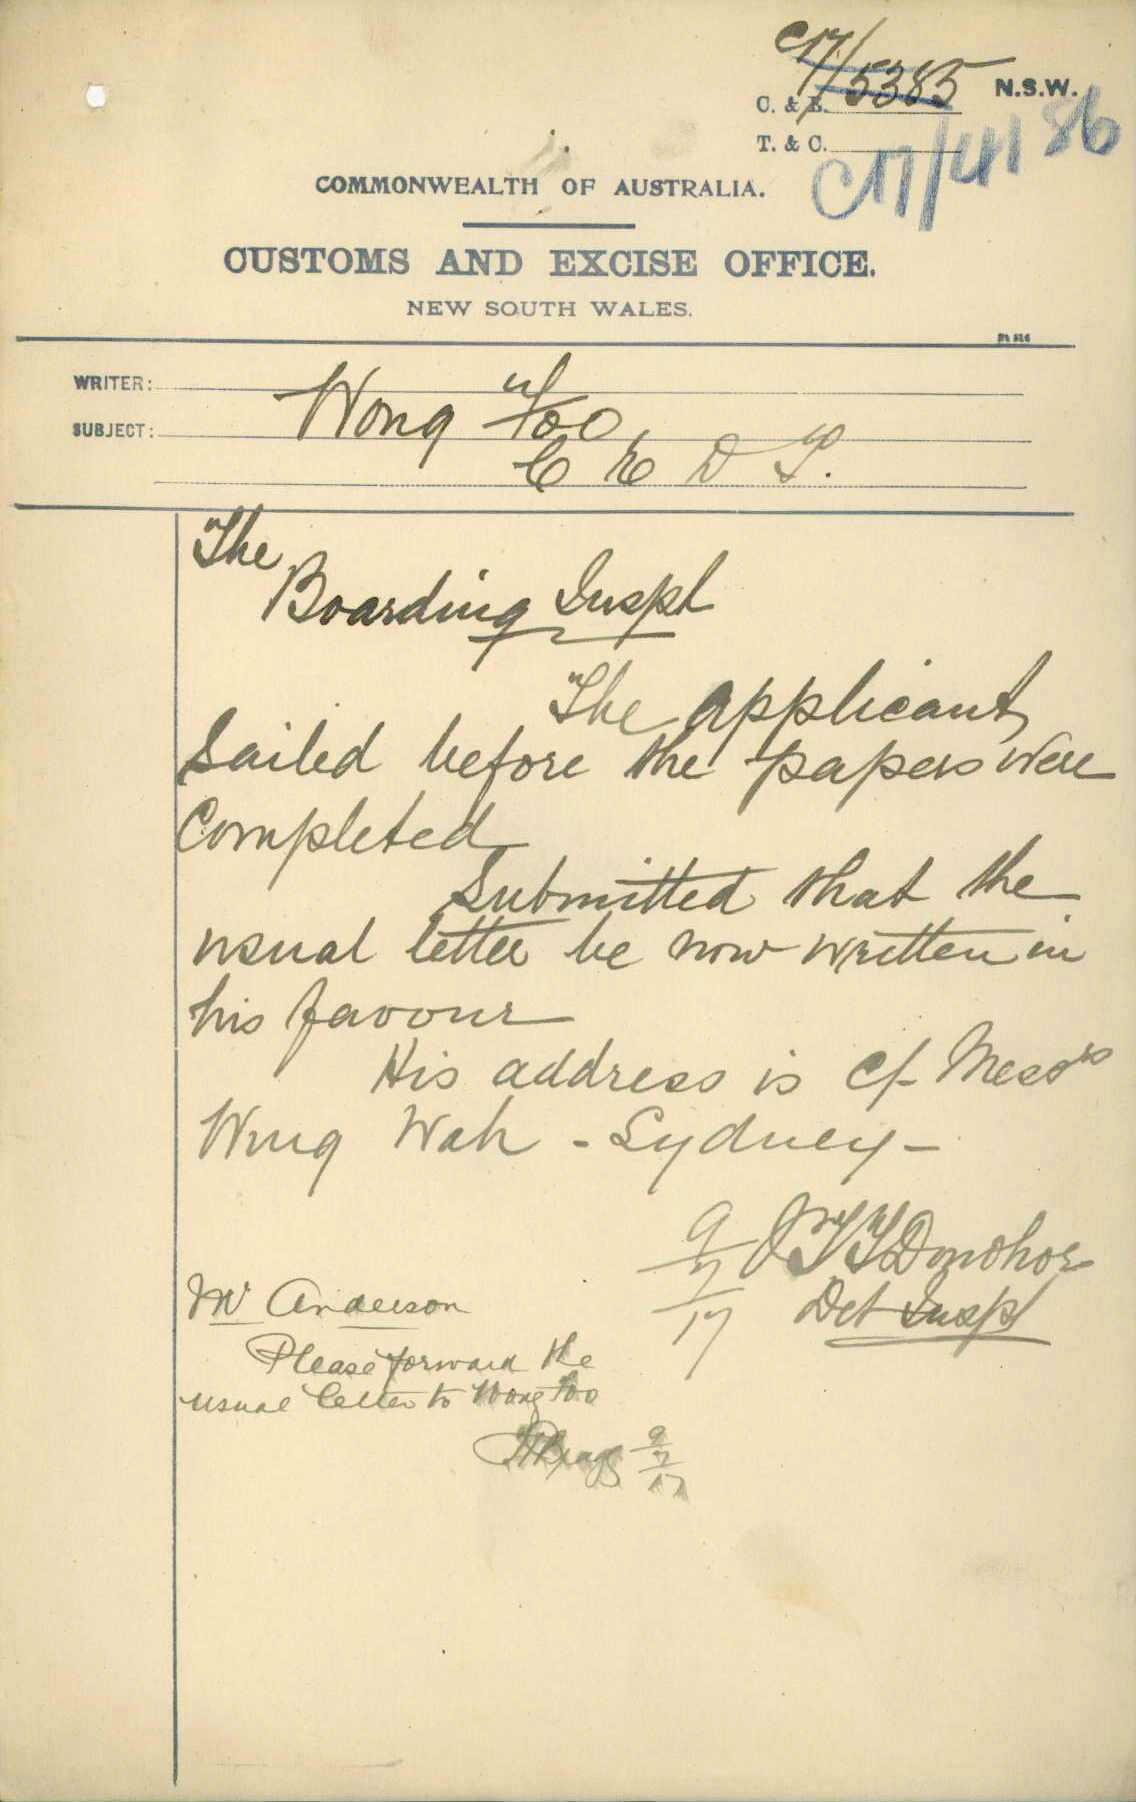 C17/5385
C. & E. N.S.W.
T. & C.
C17/4186
COMMONWEALTH OF AUSTRALIA.
CUSTOMS AND EXCISE OFFICE.
NEW SOUTH WALES.
WRITER:
SUBJECT: Wong Too
C E D T.
The
Boarding Inspt
The applicant
Sailed before the papers were
Completed
Submitted that the
usual letter be now written in
his favour
His address is c/- Messrs
Wing Wah - Sydney -
9/7/17 Donohoe
Det Inspt
Mr Anderson
Please forward the
usual letter to Wong Too
9/7/17